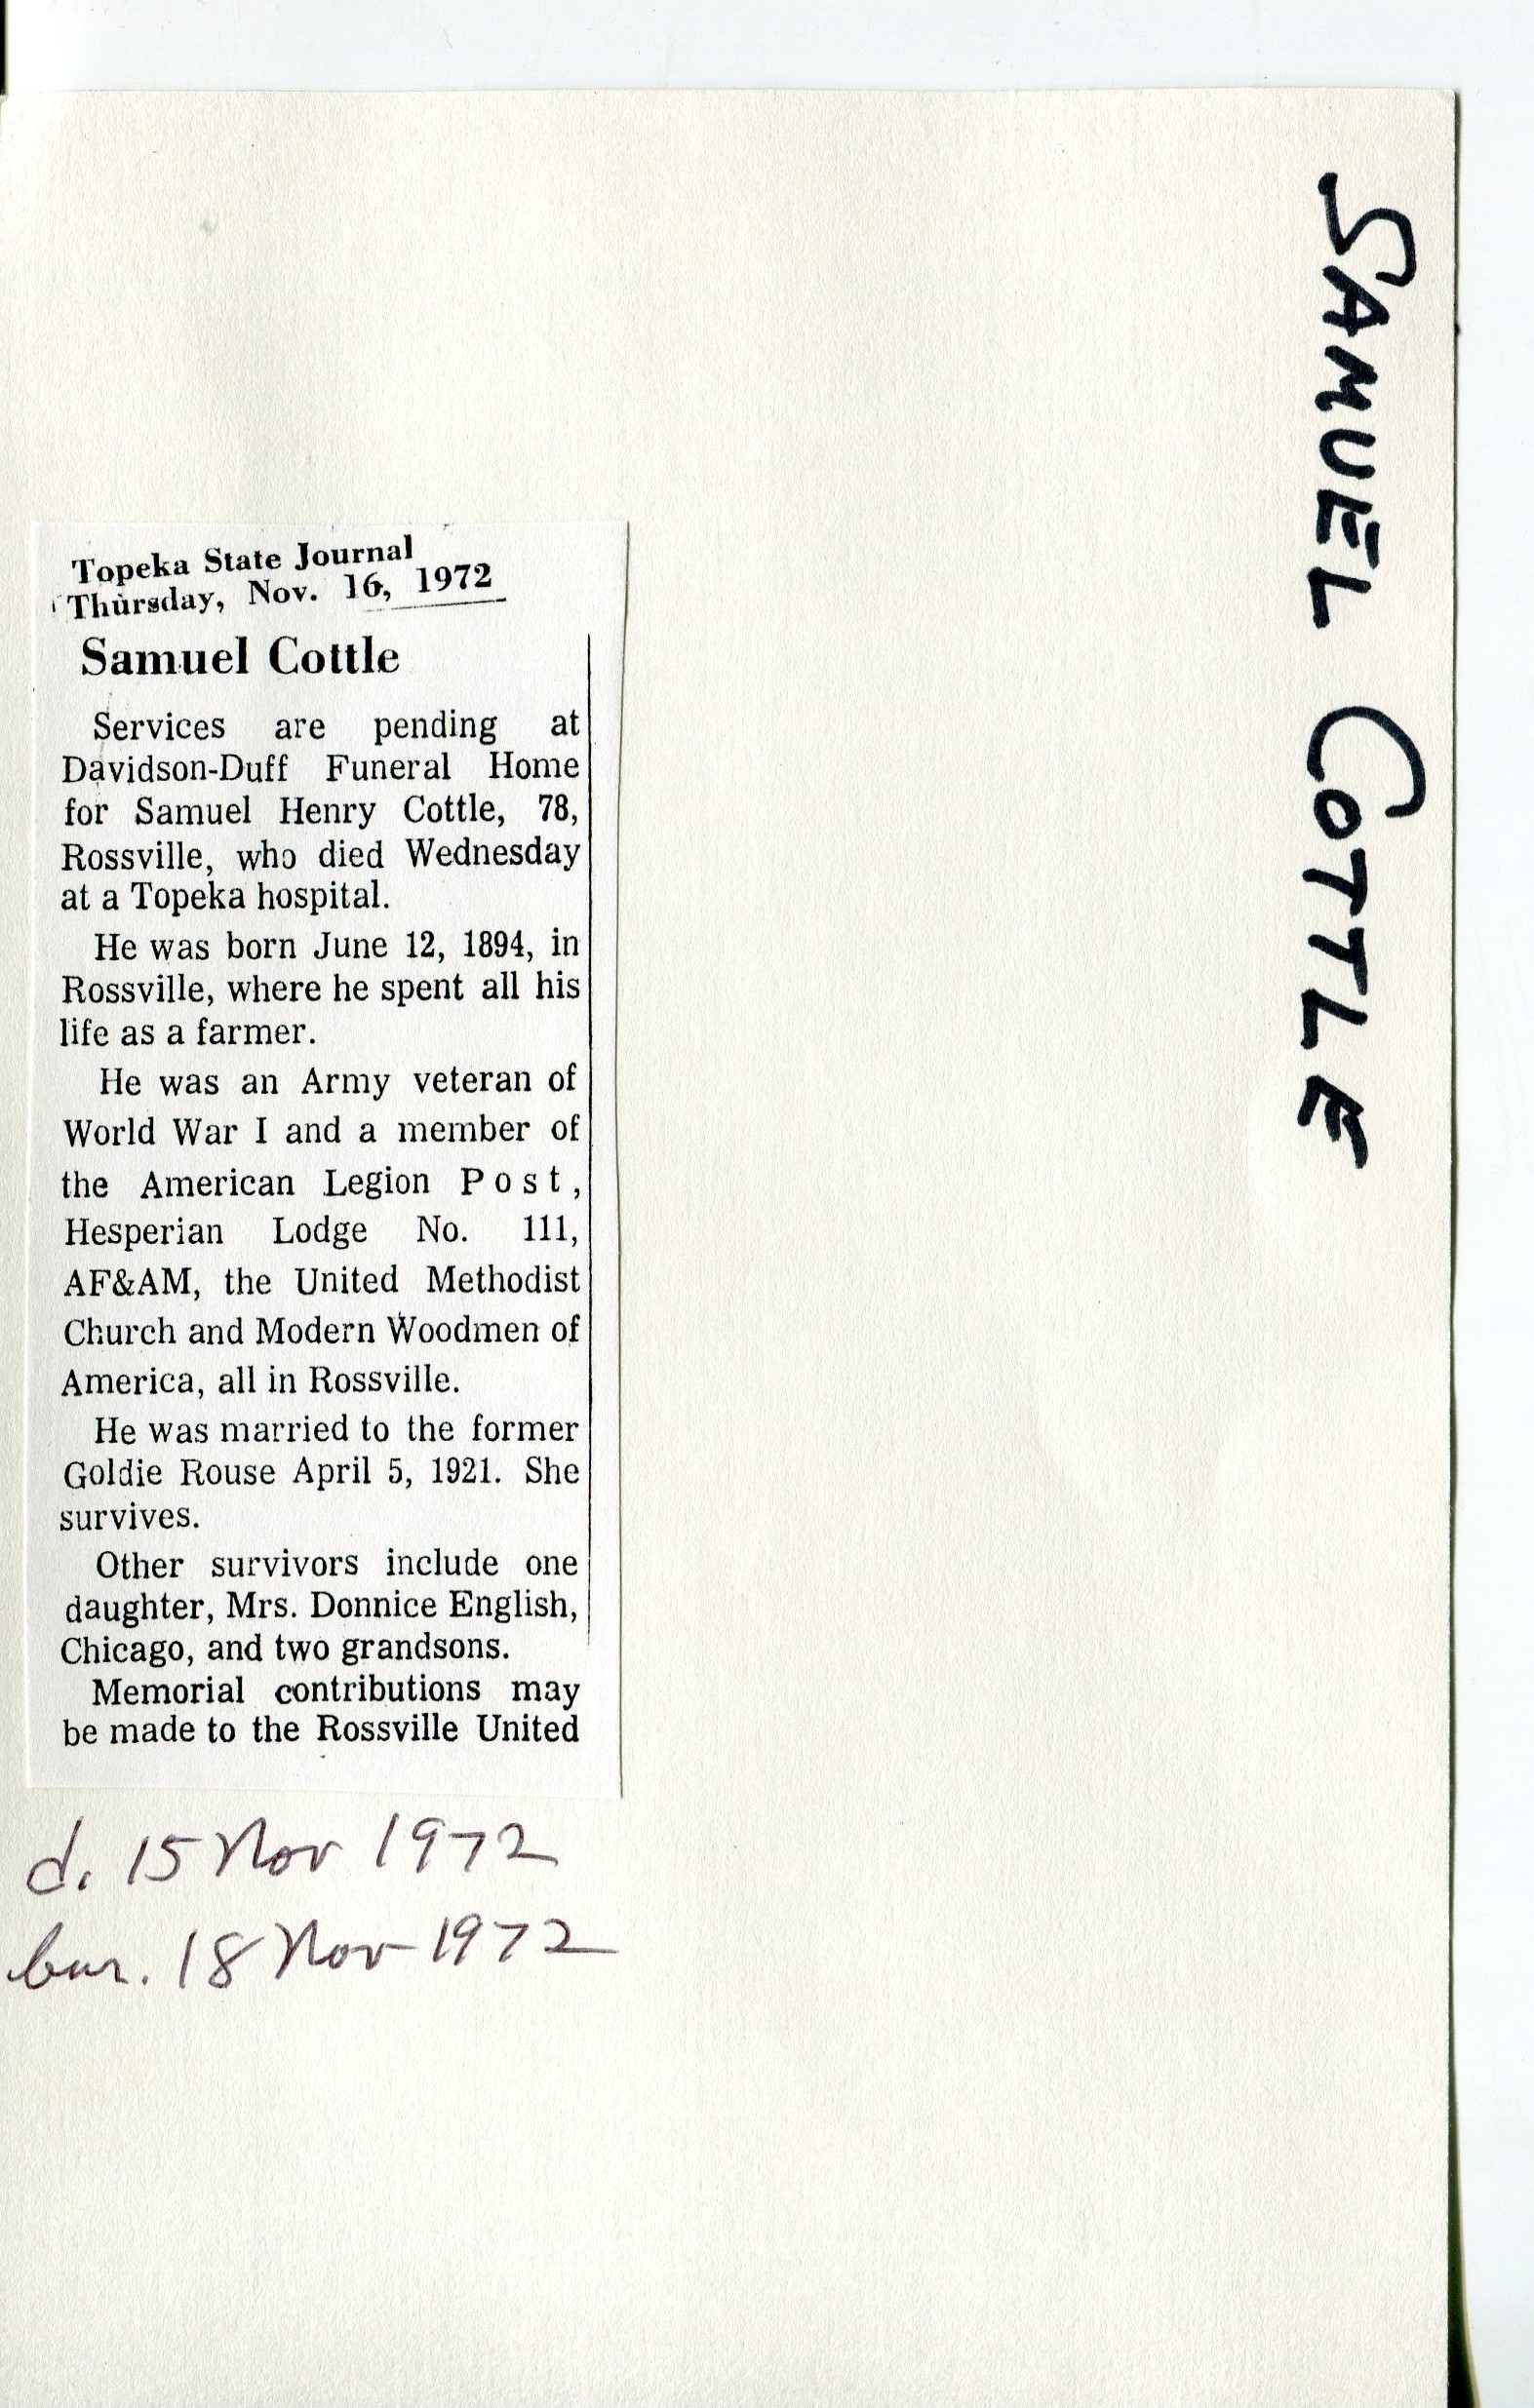 SAMUEL COTTLE
Topeka State Journal
Thursday, Nov. 16, 1972
Samuel Cottle
Services are pending at
Davidson-Duff Funeral Home
for Samuel Henry Cottle, 78,
Rossville, who died Wednesday
at a Topeka hospital.
He was born June 12, 1894, in
Rossville, where he spent all his
life as a farmer.
He was an Army veteran of
World War I and a member of
the American Legion Post,
Hesperian Lodge No. 111,
AF&AM, the United Methodist
Church and Modern Woodmen of
America, all in Rossville.
He was married to the former
Goldie Rouse April 5, 1921. She
survives.
Other survivors include one
daughter, Mrs. Donnice English,
Chicago, and two grandsons.
Memorial contributions may
be made to the Rossville United
d. 15 Nov 1972
bur. 18 Nov 1972